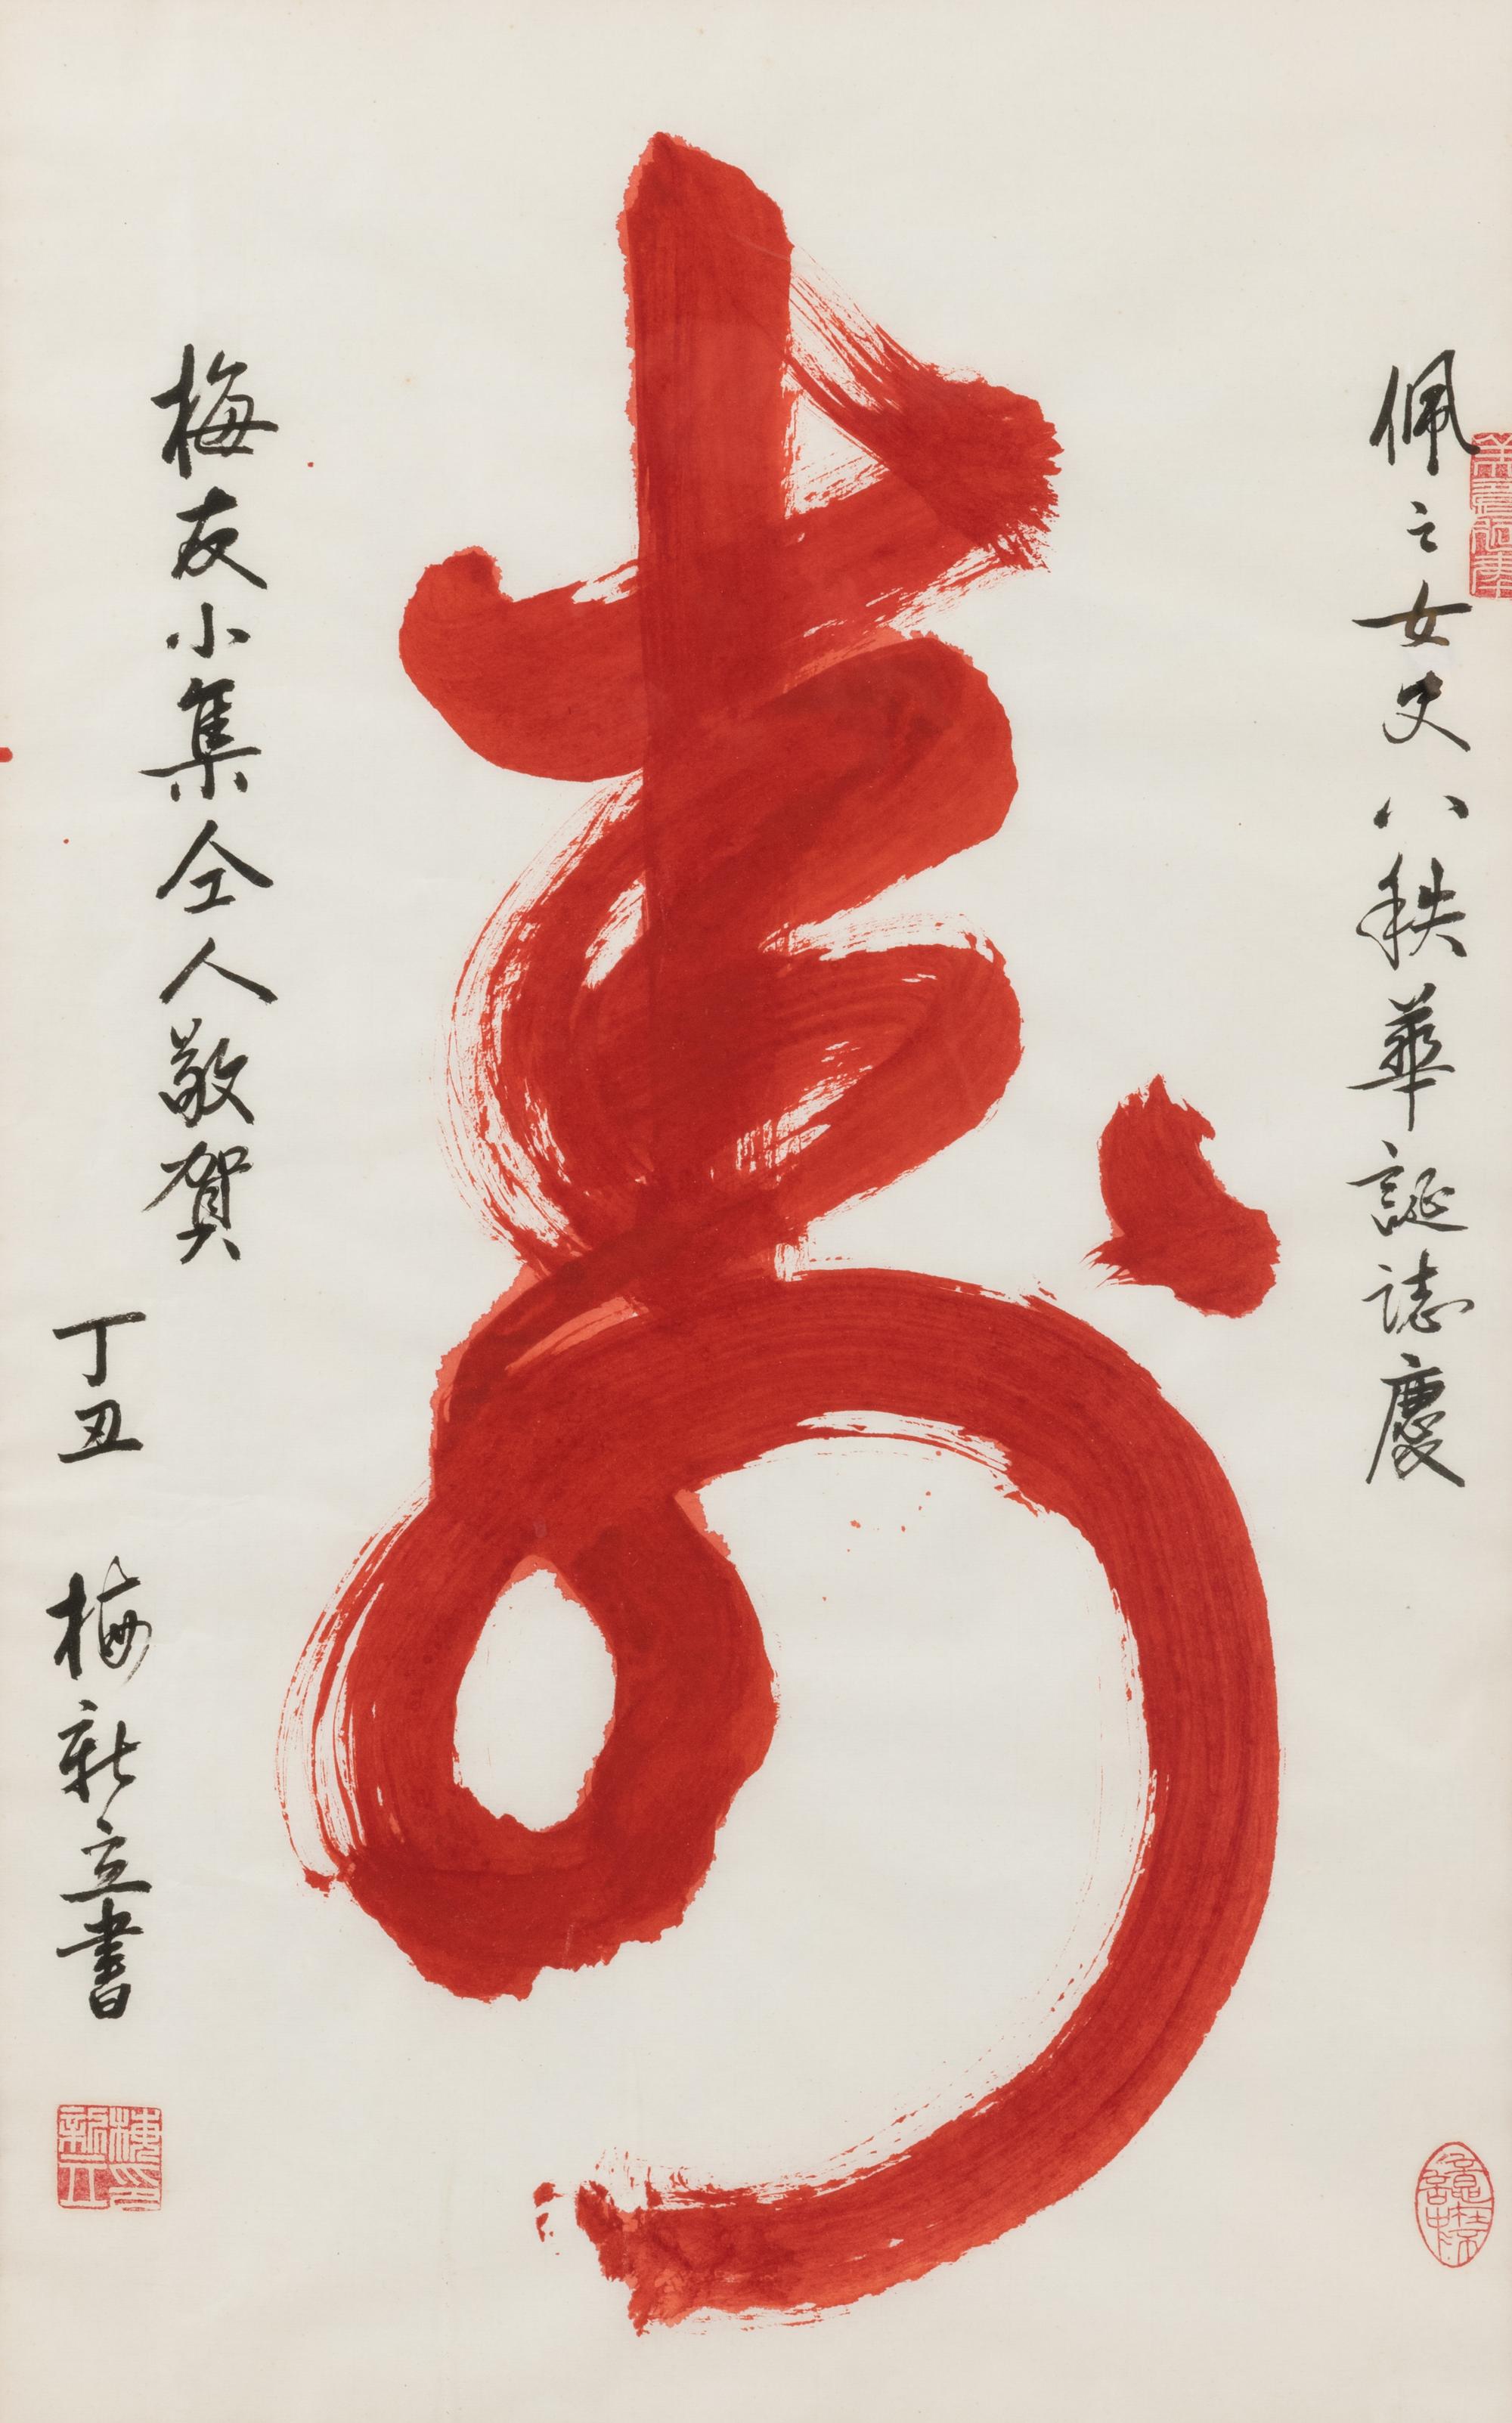 佩之女史八秩華誕誌慶
壽
梅友小集仝人敬賀
丁丑 梅新立書